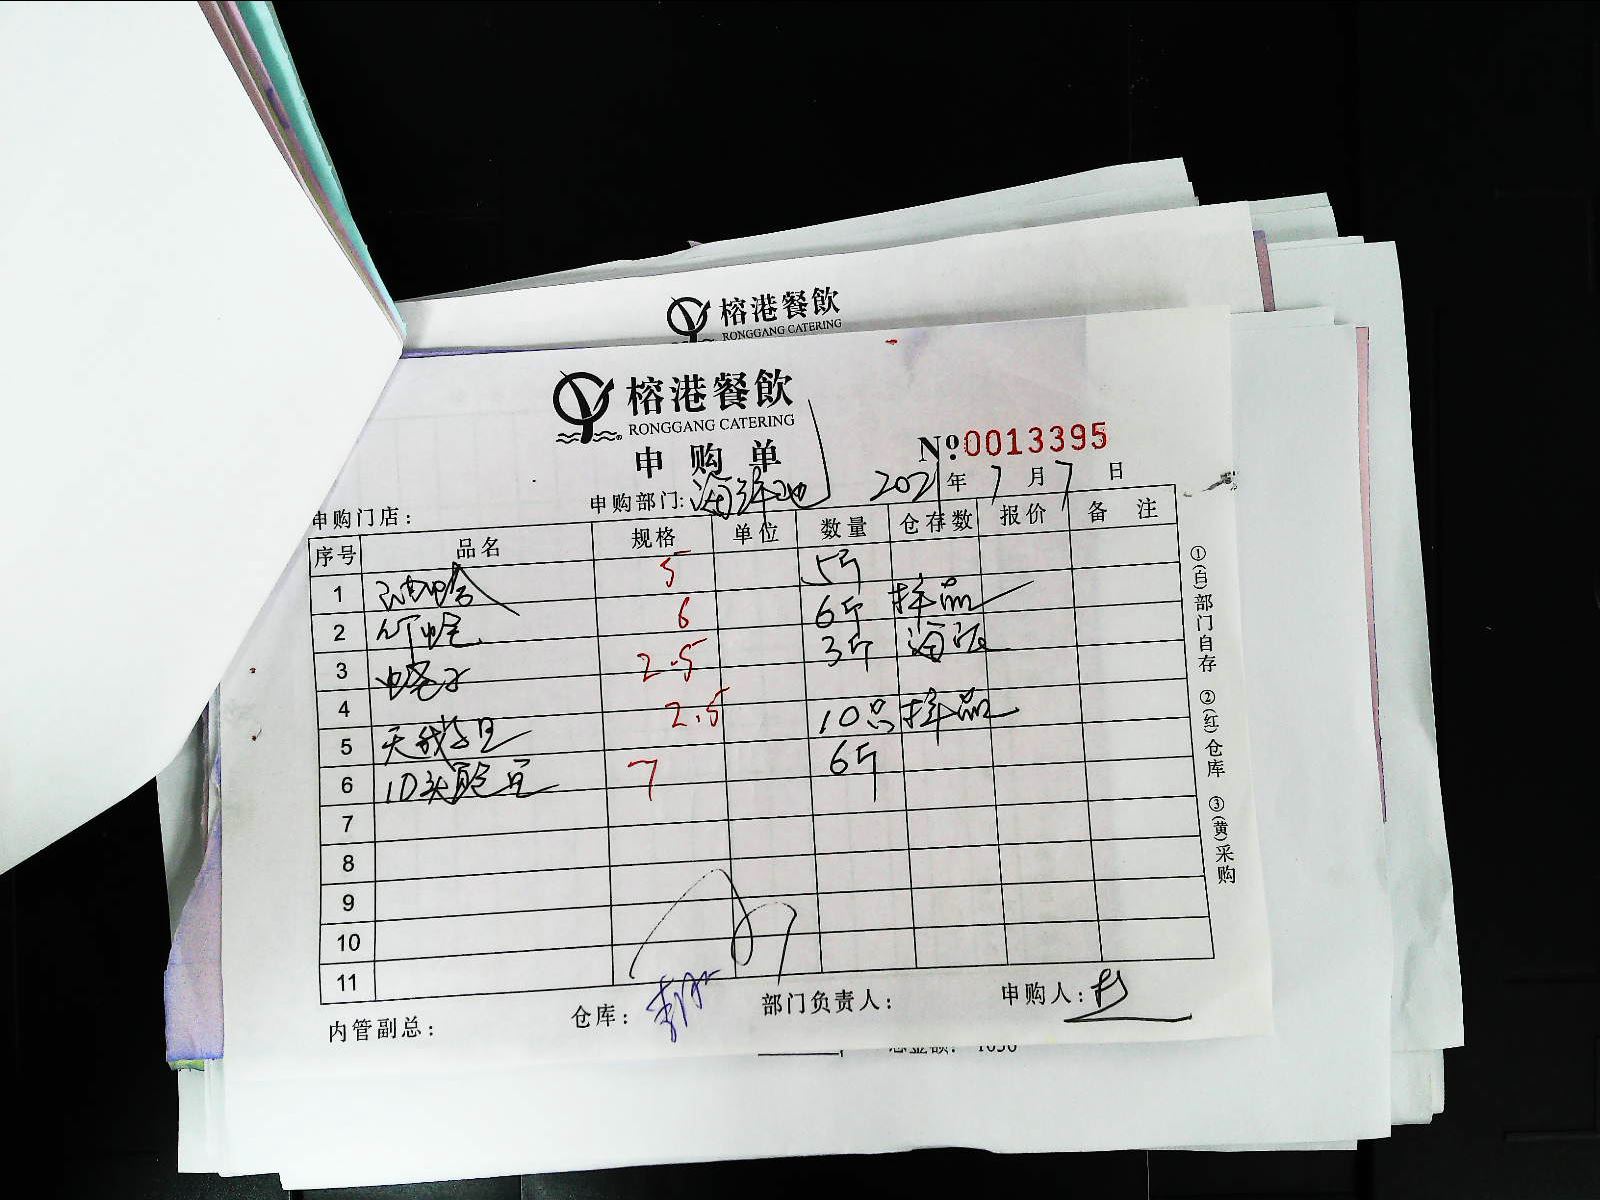 榕港餐飲
RONGGANG CATERING
榕港餐飲
RONGGANG CATERING
申购单
№:0013395
申购门店：
申购部门: 海鲜池 2021年7月7日
序号 品名 规格 单位 数量 仓存数 报价 备注
1 油蛤 5 5斤
2 竹蛏 6 6斤 样品
3 蛏子 2.5 3斤 海
4
5 天鹅 2.5 10只 样品
6 10头鲍 7 6斤
7
8
9
10
11
内管副总：
仓库：
部门负责人：
申购人：
①(白)部门自存 ②(红)仓库 ③(黄)采购
总金额： 1050